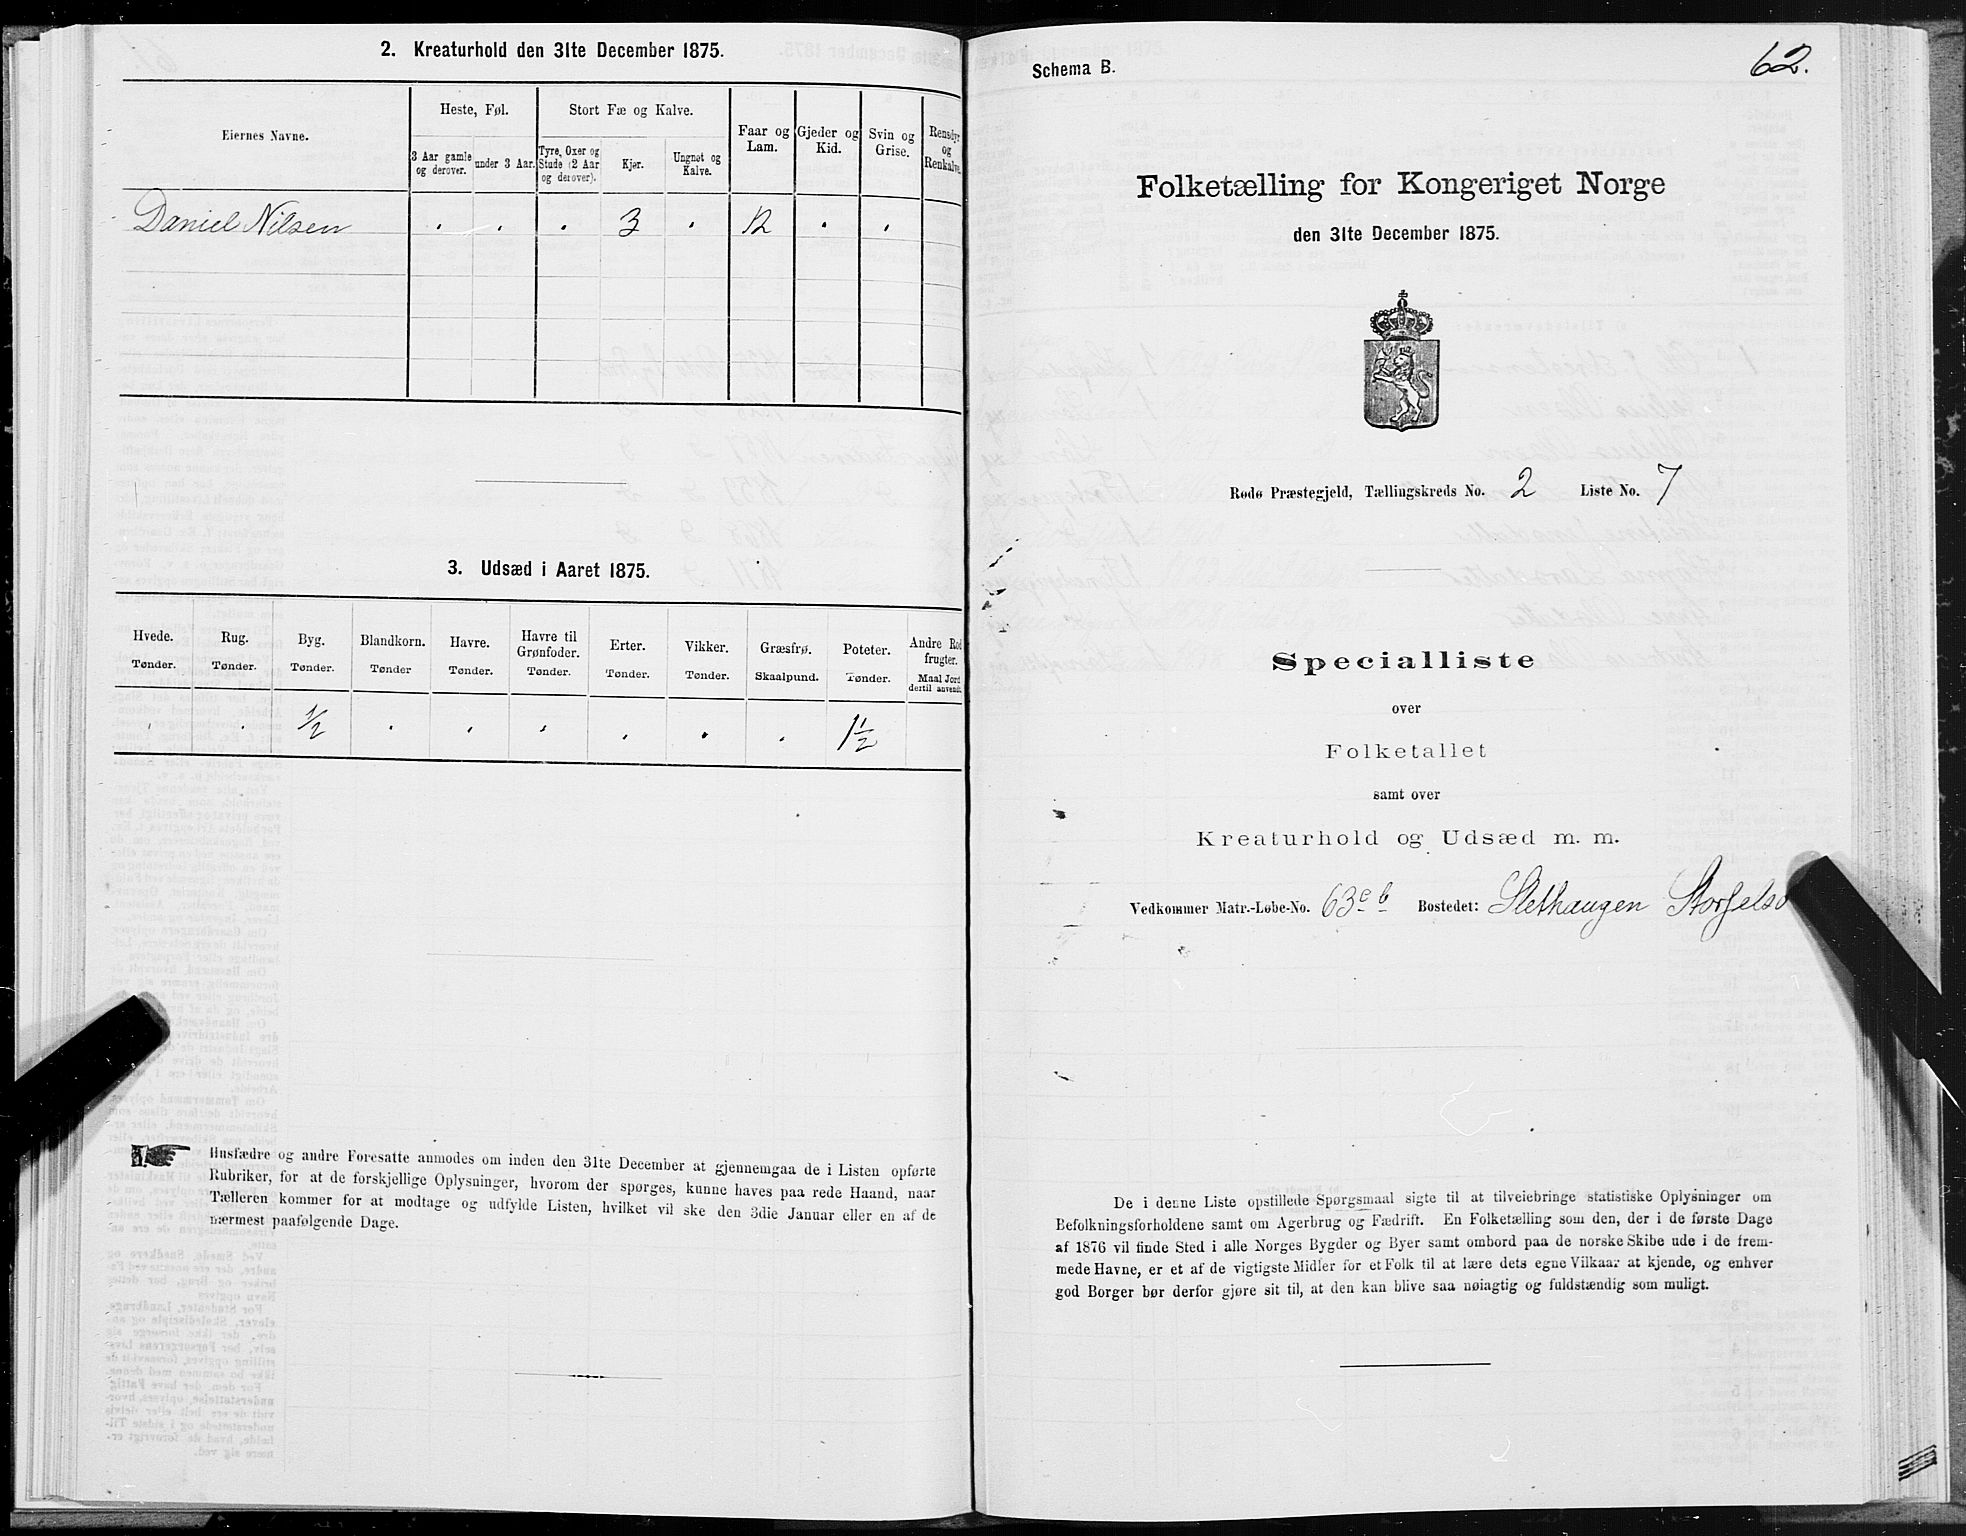 2. Kreaturhold den 31te December 1875.
Eiernes Navne.
Heste, Føl.
3 Aar gamle og derover.
under 3 Aar.
Stort Fæ og Kalve.
Tyre, Oxer og Stude (2 Aar og derover).
Kjør.
Ungnøt og Kalve.
Faar og Lam.
Gjeder og Kid.
Svin og Grise.
Rensdyr og Renkalve.
Daniel Nilsen " " " 3 " 12 " "
3. Udsæd i Aaret 1875.
Hvede. Rug. Byg. Blandkorn. Havre. Havre til Grønfoder. Erter. Vikker. Græsfrø. Poteter. Andre Rodfrugter.
Tønder. Tønder. Tønder. Tønder Tønder. Tønder. Tønder. Tønder. Skaalpund. Tønder. Maal Jord dertil anvendt.
" " 1/2 " " " " " " 1 1/2
Husfædre og andre Foresatte anmodes om inden den 31te December at gjennemgaa de i Listen opførte
Rubriker, for at de forskjellige Oplysninger, hvorom der spørges, kunne haves paa rede Haand, naar
Tælleren kommer for at modtage og udfylde Listen, hvilket vil ske den 3die Januar eller en af de
nærmest paafølgende Dage.
Schema B.
62.
Folketælling for Kongeriget Norge
den 31te December 1875.
Rødø Præstegjeld, Tællingskreds No. 2 Liste No. 7
Specialliste
over
Folketallet
samt over
Kreaturhold og Udsæd m. m.
Vedkommer Matr.-Løbe-No. 63 c b Bostedet: Slethaugen Storselsø
De i denne Liste opstillede Spørgsmaal sigte til at tilveiebringe statistiske Oplysninger om
Befolkningsforholdene samt om Agerbrug og Fædrift. En Folketælling som den, der i de første Dage
af 1876 vil finde Sted i alle Norges Bygder og Byer samt ombord paa de norske Skibe ude i de frem-
mede Havne, er et af de vigtigste Midler for et Folk til at lære dets egne Vilkaar at kjende, og enhver
god Borger bør derfor gjøre sit til, at den kan blive saa nøiagtig og fuldstændig som muligt.